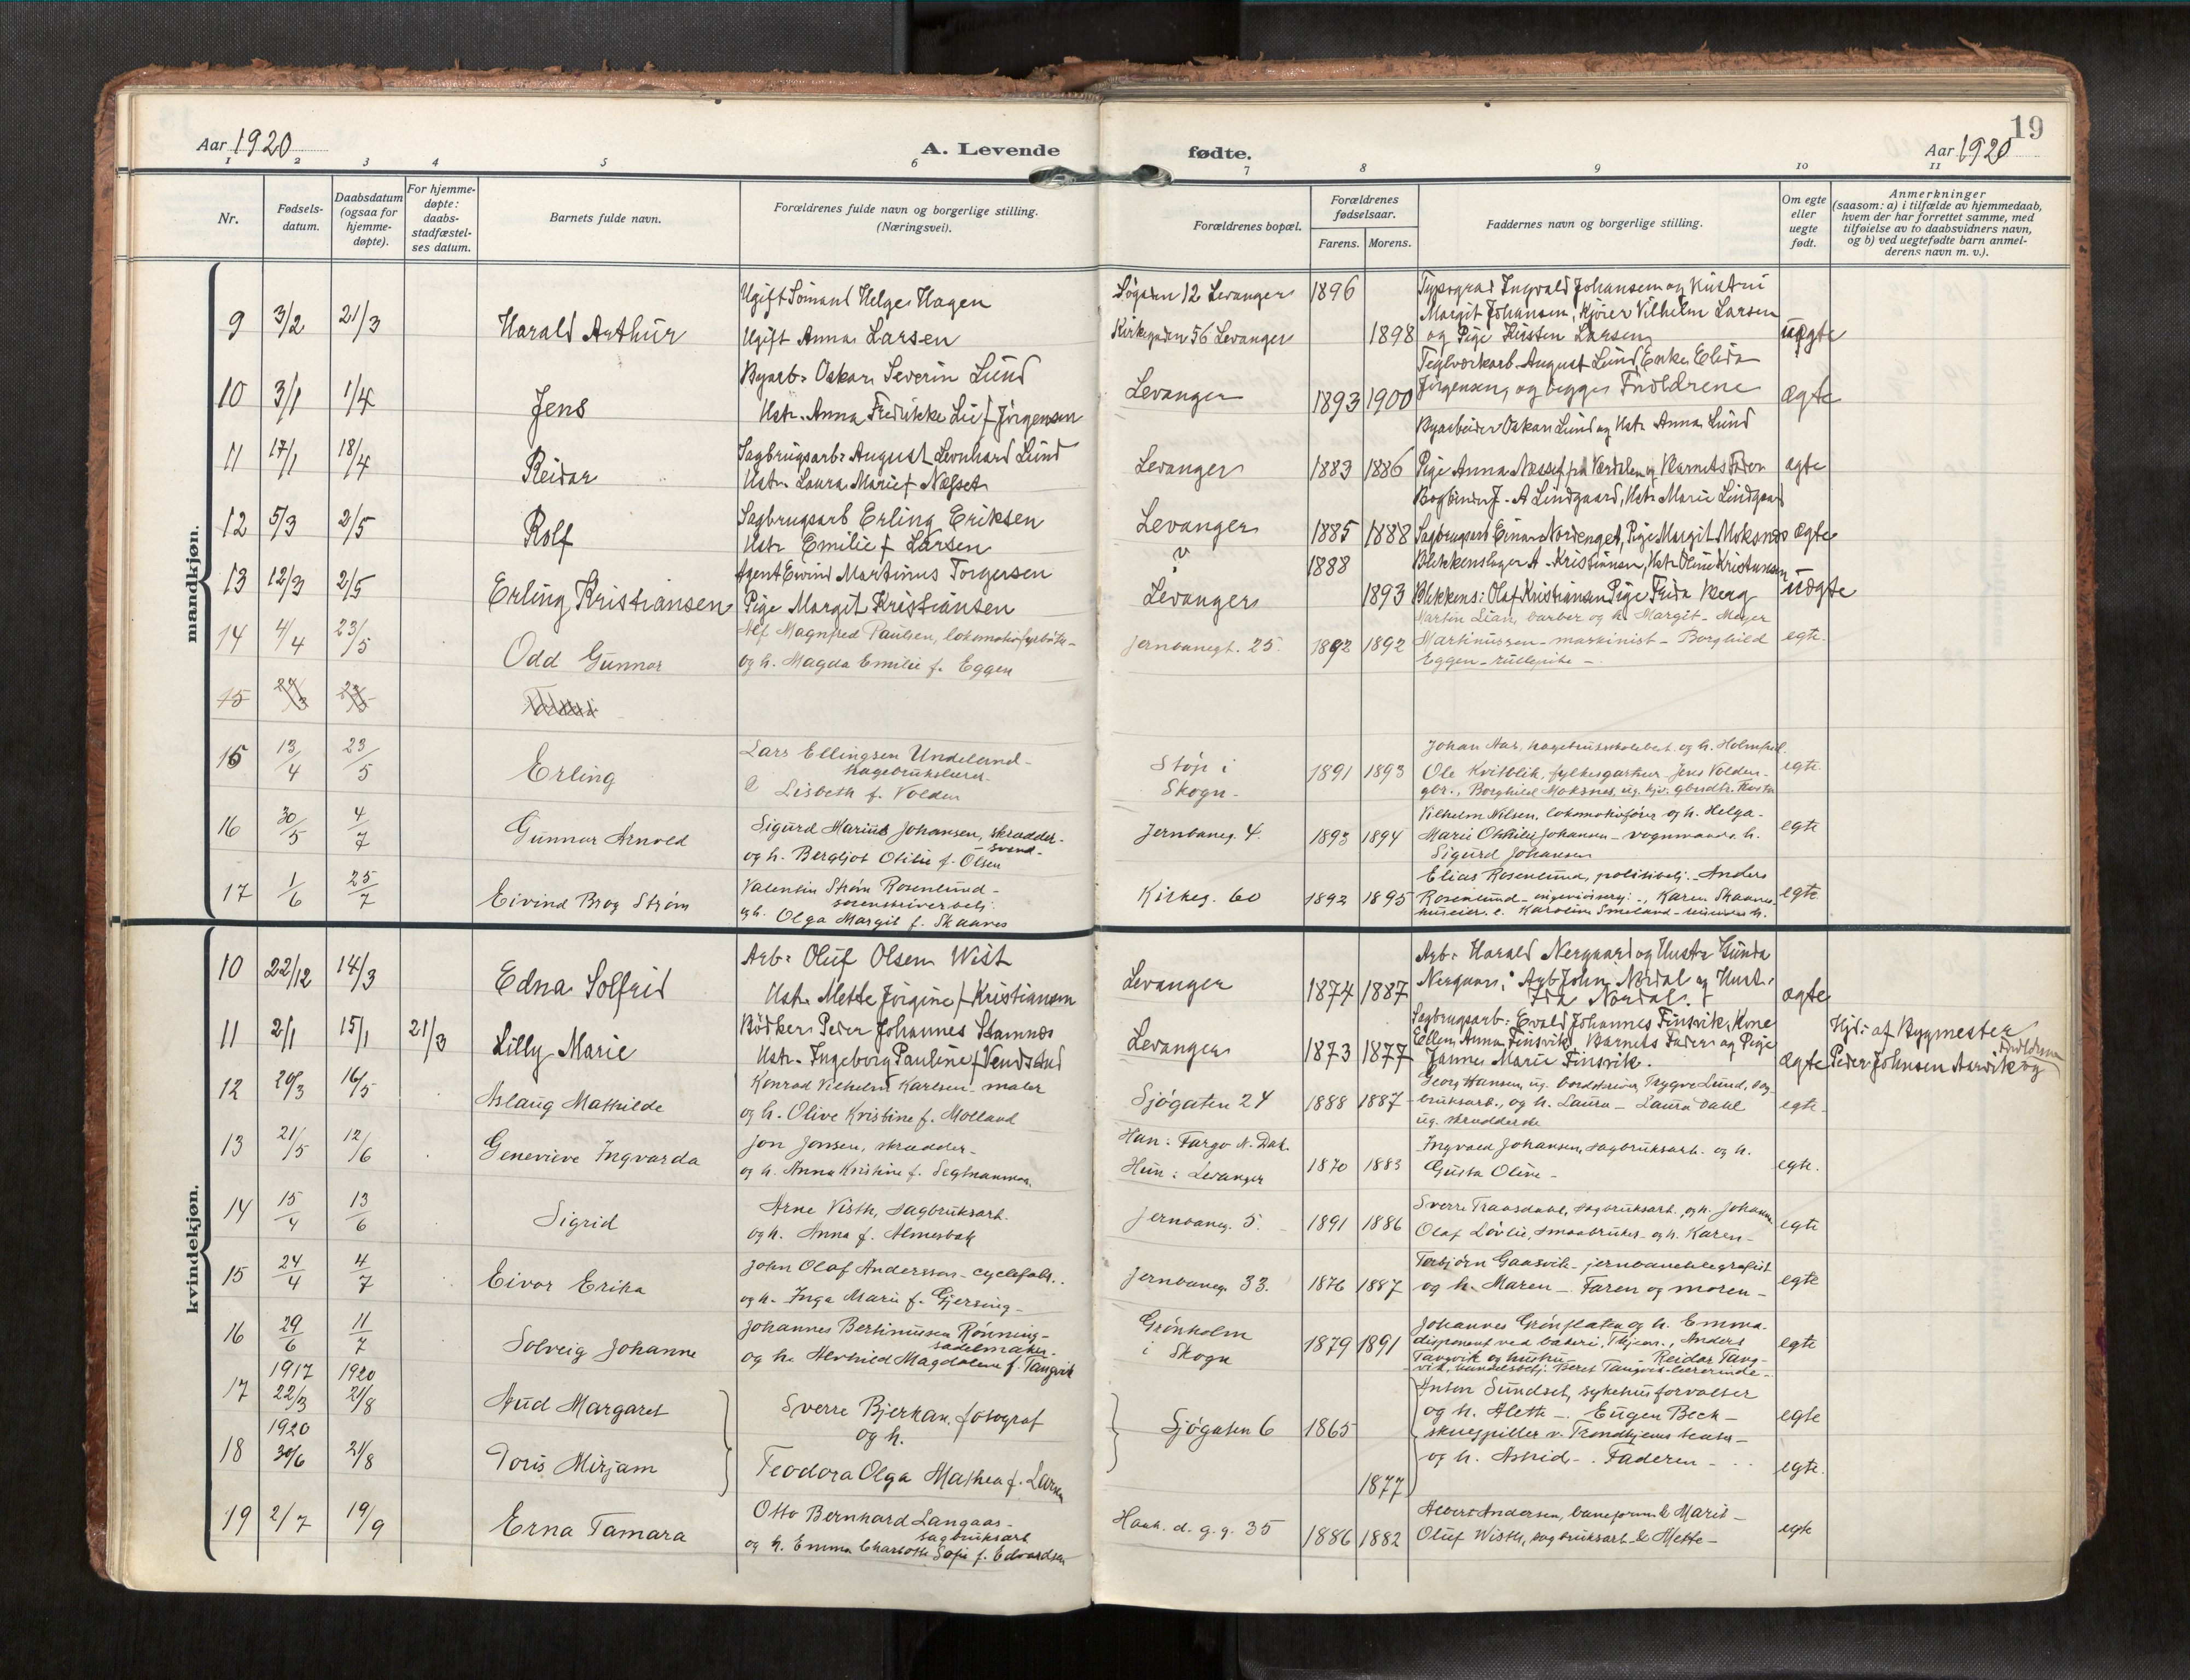 19
Aar 1920
A. Levende fødte.
Aar 1920
1 2 3 4 5 6 7 8 9 10 11
Nr.
Fødsels-
datum.
Daabsdatum
(ogsaa for
hjemme-
døpte).
For hjemme-
døpte:
daabs-
stadfæstel-
ses datum.
Barnets fulde navn.
Forældrenes fulde navn og borgerlige stilling.
(Næringsvei).
Forældrenes bopæl.
Forældrenes
fødselsaar.
Farens. Morens.
Faddernes navn og borgerlige stilling.
Om egte
eller
uegte
født.
Anmerkninger
(saasom: a) i tilfælde av hjemmedaab,
hvem der har forrettet samme, med
tilføielse av to daabsvidners navn,
og b) ved uegtefødte barn anmel-
derens navn m. v.).
mandkjøn.
9 3/2 21/3 Harald Arthur
Ugift Sömand Helge Hagen
Ugift Anna Larsen
Sögaden 12 Levanger 1896
Kirkegaden 56 Levanger 1898
Typograf Ingvald Johansen og Hustru
Margit Johansen, Kjörer Vilhelm Larsen
og Pige Kirsten Larsen
uægte
10 3/1 1/4 Jens
Byarb. Oskar Severin Lund
Ustr. Anna Fredrikke Lu f. Jörgensen
Levanger 1893 1900
Teglverkarb. August Lund, Enke Elida
Jörgensen, og begge Forældrene
ægte
11 17/1 18/4 Reidar
Sagbrugsarb. August Leonhard Lund
Ustr. Laura Marie f. Næsset
Levanger 1883 1886
Byarbeider Oskar Lund og Ustr. Anna Lund
Pige Anna Næsset fra Værdalen og Barnets Fader
ægte
12 5/3 2/5 Rolf
Sagbrugsarb Erling Eriksen
Ustr Emilie f. Larsen
Levanger 1885 1888
Bogbinder J. A Lindgaard, Ustr. Marie Lindgaard
Sagbrugsarb Einar Nordenget, Pige Margit Moksnes
ægte
13 12/3 2/5 Erling Kristiansen
Agent Eivind Martinus Torgersen
Pige Margit Kristiansen
Levanger 1888 1893
Blikkenslager A. Kristiansen, Ustr Oline Kristiansen
Blikkens: Olaf Kristiansen Pige Frida Berg
uægte
14 4/4 23/5 Odd Gunnar
Alf Magnfred Paulsen, lokomotivfyrbøter -
og h. Magda Emilie f. Eggen
Jernbanegt. 25. 1892 1892
Martin Lian, barber og h. Margit - Meyer
Martinussen - maskinist - Borghild
Eggen -
egte.
15
15 13/4 23/5 Erling
Lars Ellingsen Undeland -
hagebrukslærer
& Lisbeth f. Volden
Støp i
Skogn - 1891 1893
Johan Aas, hagebruksskolebest. og h. Holmfrid.
Ole Kvitblik, fylkesgartner - Jens Volden -
gbr., Borghild Moksnes, ug.
egte.
16 30/5 4/7 Gunnar Arnold
Sigurd Marius Johansen, skrædder-
svend -
og h. Bergljot Otilie f. Olsen
Jernbaneg. 4. 1893 1894
Vilhelm Nilsen, lokomotivfører og h. Helga -
Marie Othilie Johansen - vognmands h.
Sigurd Johansen
egte
17 1/6 25/7 Eivind Brog Strøm
Valentin Strøm Rosenlund -
sorenskriverbetj.
og h. Olga Margit f. Skaanes
Kirkeg. 60 1892 1895
Elias Rosenlund, politibetj. - Anders
Rosenlund - -, Karen Skaanes
huseier e. Karoline Smeland - h.
egte.
kvindekjøn.
10 22/12 14/3 Edna Solfrid
Arb. Oluf Olsen Wist
Ustr. Mette Jörgine f. Kristiansen
Levanger 1874 1887
Arb. Harald Nergaard og Hustr. Gunda
Nergaard; Arb John Nordal og Hustr.
Ida Nordal.
ægte
11 2/1 15/1 21/3 Lilly Marie
Bödker Peder Johannes Stamnes
Ustr. Ingeborg Pauline f. Vendstad
Levanger 1873 1877
Sagbrugsarb: Evald Johannes Finsvik, Kone
Ellen Anna Finsvik, Barnets Fader og Pige
Janna Marie Finsvik.
ægte
Hjd. af Bygmester
Peder Johnsen Aarvik og
Forældrene
12 20/3 16/5 Aslaug Mathilde
Konrad Vilhelm Karlsen - maler
og h. Olive Kristine f. Molland
Sjøgaten 24 1888 1887
Georg Hansen, ug. bordskriver, Trygve Lund, sag-
bruksarb., og h. Laura - Laura Dahl
ug. skrædderske
egte -
13 21/5 12/6 Genevieve Ingvarda
Jon Jonsen, skrædder -
og h. Anna Kristine f. Segtnanmoe.
Han: Fargo N. Dak.
Hun: Levanger 1870 1883
Ingvald Johansen, sagbruksarb. og h.
Gusta Oline -
egte.
14 15/4 13/6 Sigrid
Arne Visth, sagbruksarb.
og h. Anna f. Almesbak
Jernbaneg. 5. 1891 1886
Sverre Traasdahl, sagbruksarb. og h. Johanna.
Olaf Løvlie, smaabruker - og h. Karen -
egte
15 24/4 4/7 Eivor Erika
John Olaf Andersson - cyclefabr..
og h. Inga Marie f. Gjersing -
Jernbaneg. 33. 1876 1887
Torbjørn Gaasvik - jernbanetelegrafist
og h. Maren - Faren og moren -
egte
16 29/6 11/7 Solveig Johanne
Johannes Bertinussen Rønning -
sadelmaker -
og h. Alvhild Magdalene f. Tangvik
Grønholm
i Skogn 1879 1891
Johannes Grønflaten og h. Emma -
disponent ved bakeri, Thjem., Anders
Tangvik og hustru - Reidar Tang-
vik, handelsbetj. Beret Tangvik lærerinde -.
egte
17 1917 22/3 1920 21/8 Aud Margaret
18 1920 30/6 21/8 Doris Mirjam
Sverre Bjerkan, fotograf
og h.
Teodora Olga Mathea f. Larsen
Sjøgaten 6 1865 1877
Anton Sundset, sykehusforvalter
og h. Alette -. Eugen Bech -
skuespiller v. Trondhjems teater -
og h. Astrid -. Faderen -
egte
egte.
19 2/7 19/9 Erna Tamara
Otto Bernhard Langaas -
sagbruksarb
og h. Emma Charlotte Sofie f. Edvardsen
Haak. d. g. g. 35 1886 1882
Albert Andersen, baneform. & Marit -
Oluf Wisth, sagbruksarb. & Mette -
egte